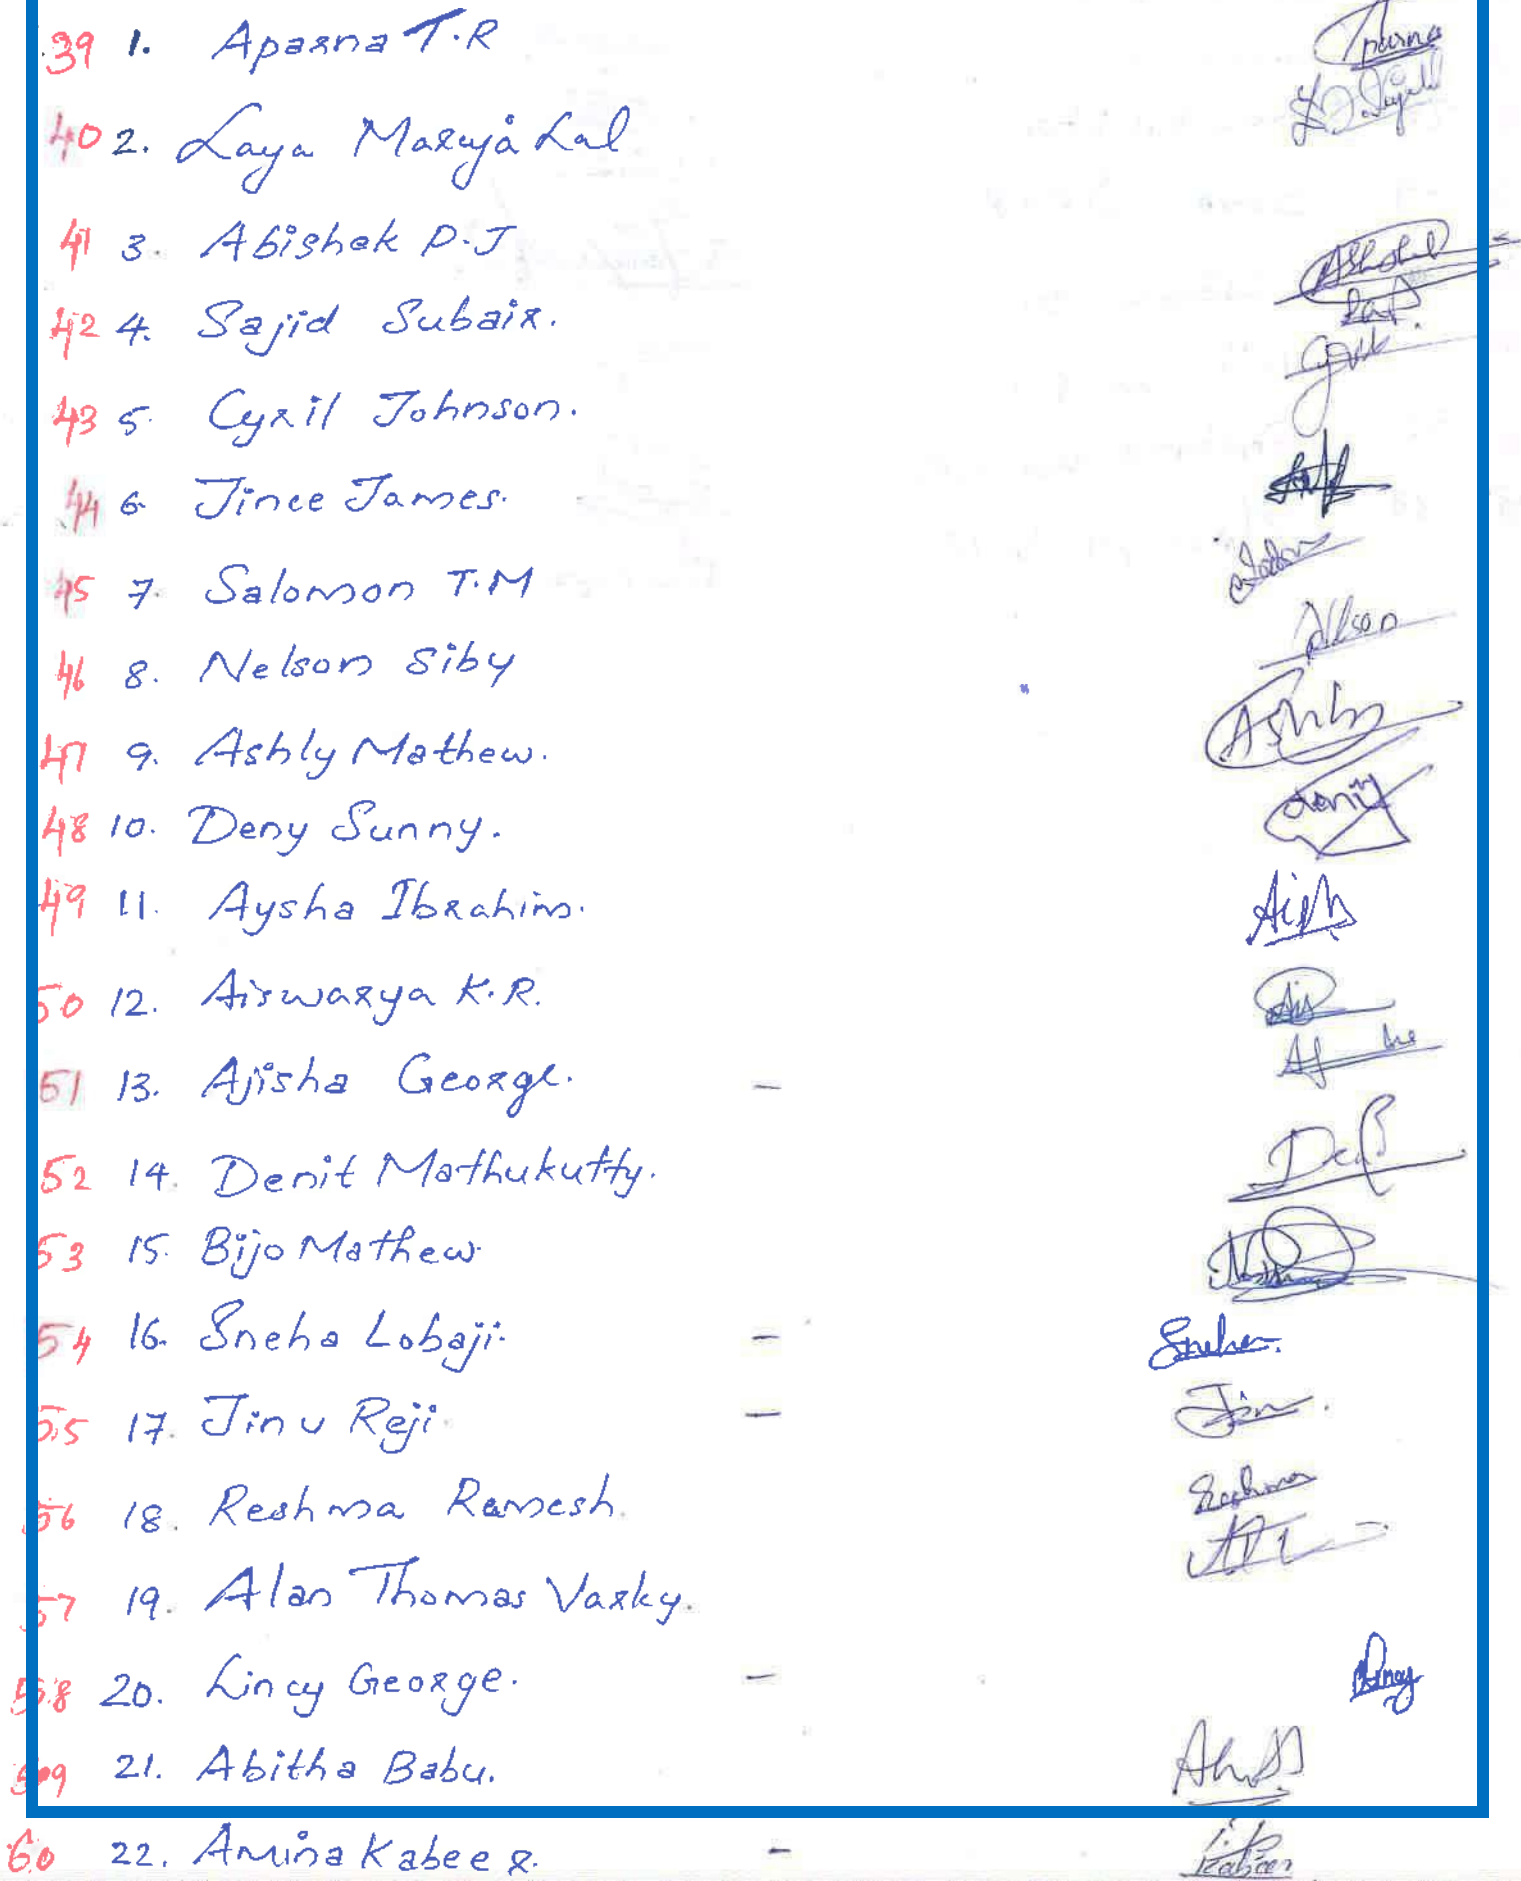 39 1. Aparna T.R Aparna
40 2. Laya Maruja Lal
41 3. Abishek P.J Abishek
42 4. Sajid Subair.
43 5. Cyril Johnson. Cyril.
44 6. Jince James.
45 7. Salomon T.M
46 8. Nelson Siby Nelson
47 9. Ashly Mathew. Ashly
48 10. Deny Sunny. Deny
49 11. Aysha Ibrahim. Aish
50 12. Aiswarya K.R.
51 13. Ajisha George. -
52 14. Denit Mathukutty.
53 15. Bijo Mathew.
54 16. Sneha Lobaji. - Sneha.
55 17. Jinu Reji - Jinu.
56 18. Reshma Ramesh. Reshma
57 19. Alan Thomas Varky.
58 20. Lincy George. - Lincy
59 21. Abitha Babu.
60 22. Amina Kabeer. - Kabeer